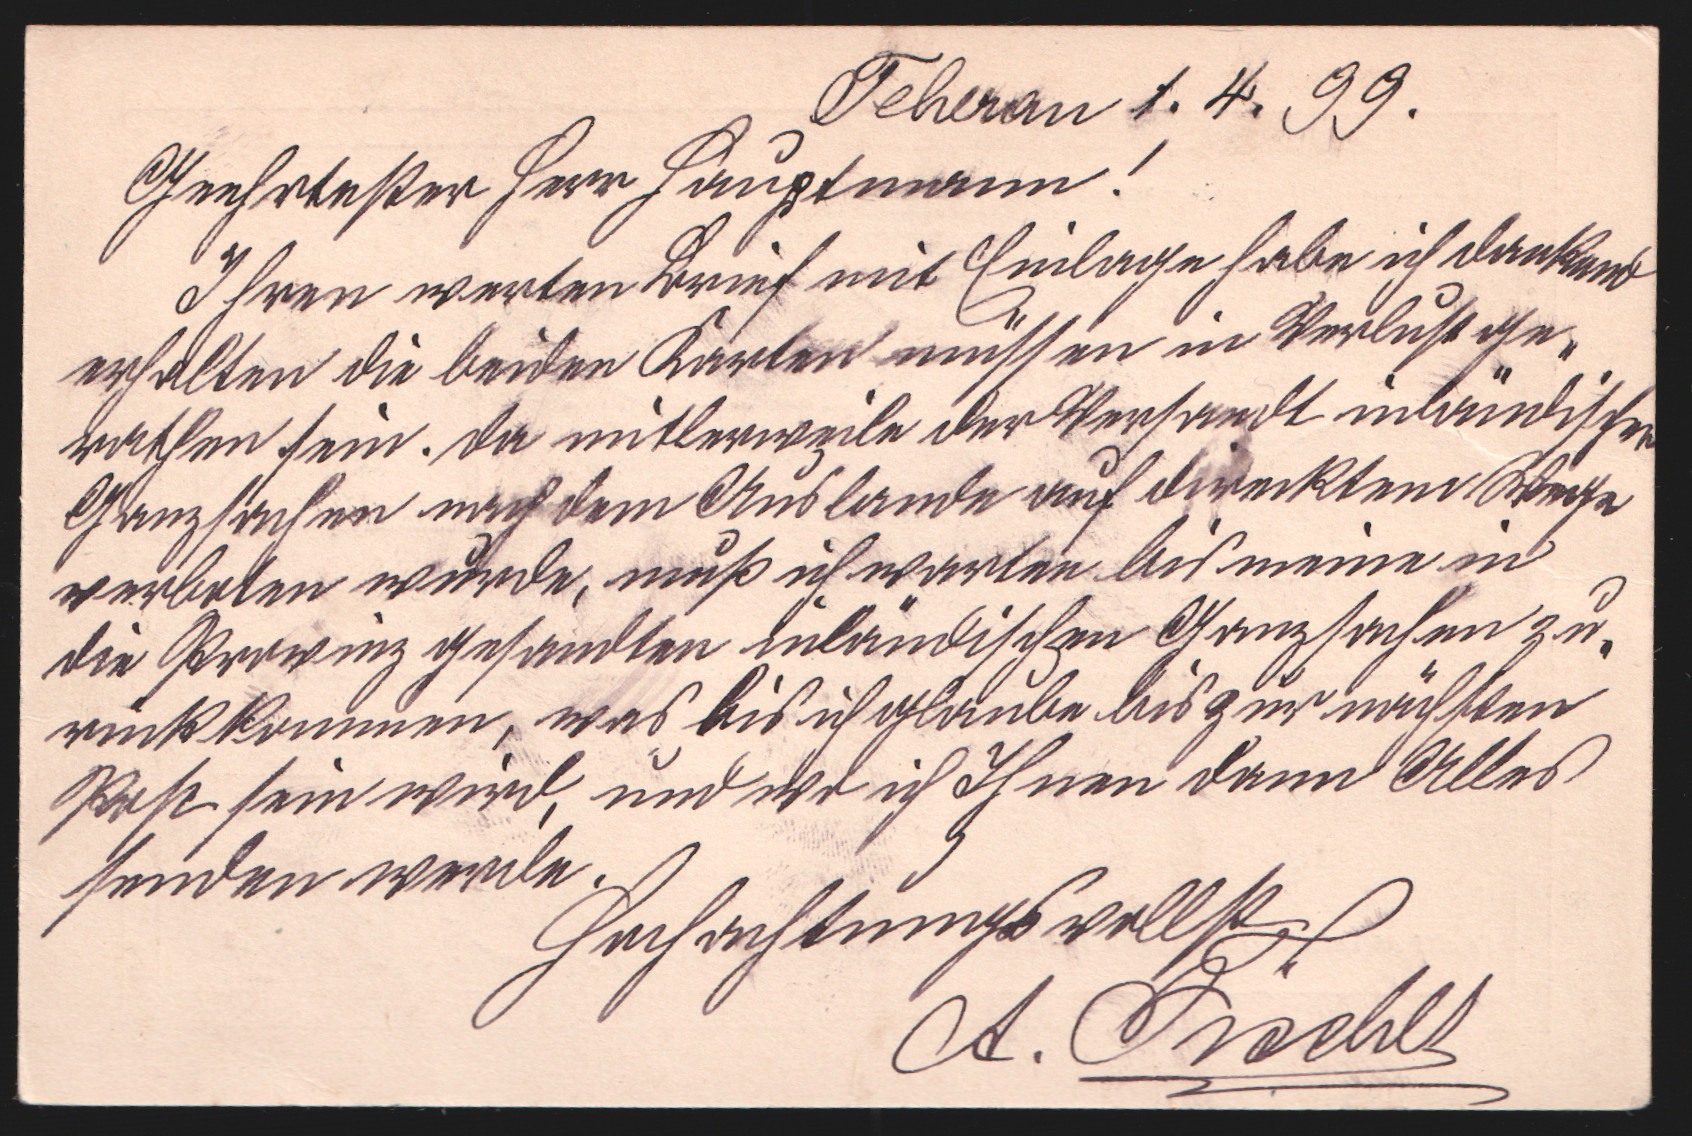 Teheran 1. 4. 99.
Geehrtester Herr Hauptmann!
Ihren werten Brief mit Einlage habe ich dankend
erhalten die beiden Karten müssen in Verlust ge-
rathen sein. da mitlerweile der Versandt inländischer
Ganzsachen nach dem Auslande auf direktem Wege
verboten wurde, muß ich warten bis meine in
die Provinz gesandten inländischen Ganzsachen zu-
rückkommen, was bis ich glaube bis zur nächsten
Post sein wird, und wo ich Ihnen dann Alles
senden werde.
Hochachtungsvollst
A.